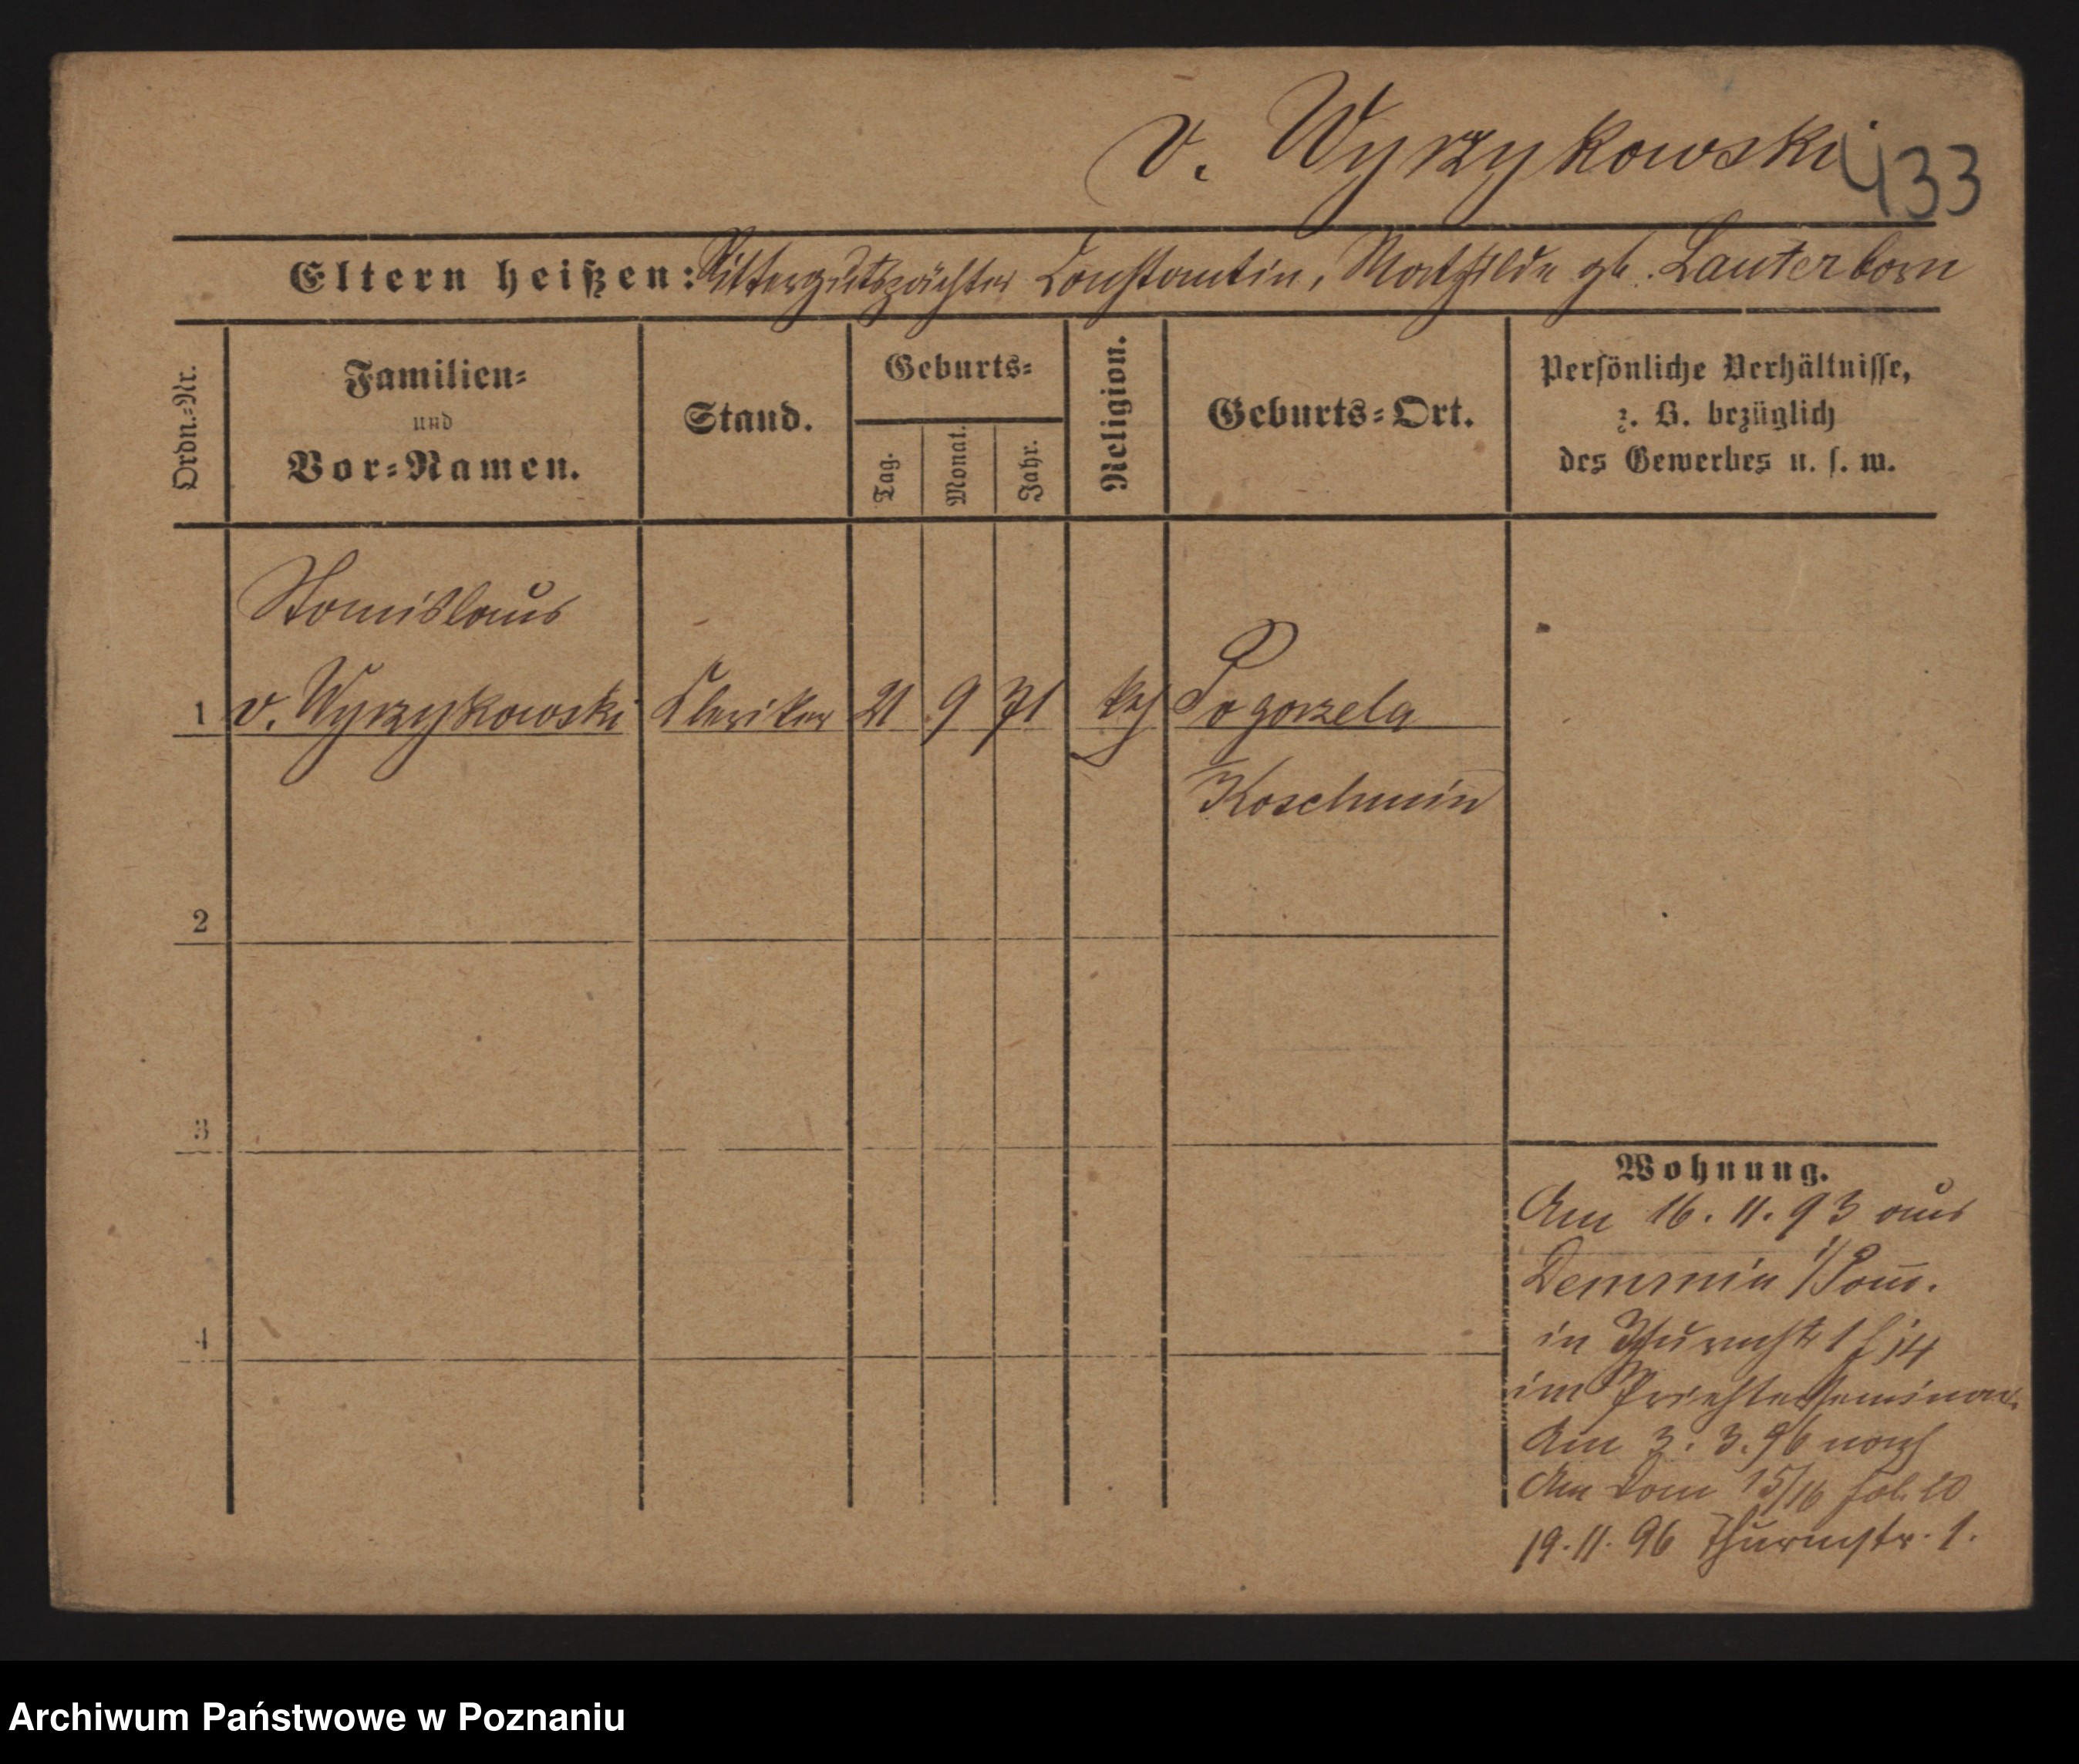 v. Wyrzykowski
433
Eltern heißen: Rittergutspächter Constantin, Mathilde gb. Lauterborn
Ordn.=Nr.
Familien=
und
Vor=Namen.
Stand.
Geburts=
Tag.
Monat.
Jahr.
Religion.
Geburts=Ort.
Persönliche Verhältnisse,
z. B. bezüglich
des Gewerbes u. s. w.
Stanislaus
1 v. Wyrzykowski Kleriker 21 9 71 kth Pogorzela
Koschmin
2
3
4
Wohnung.
Am 16. 11. 93 aus
Demmin i/Pom.
in Thurmstr 1 f 14
im Priesterseminar.
Am 3. 3. 96 nach
Am Dom 15/16 fol. 20
19. 11. 96 Thurmstr. 1.
Archiwum Państwowe w Poznaniu